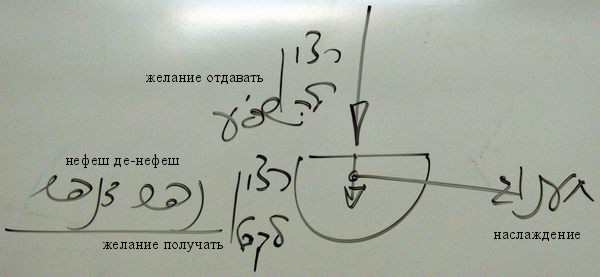 רצון
желание отдавать
להשפיע
нефеш де-нефеш
רצון
נפש דנפש
תענוג
наслаждение
желание получать
לקבל